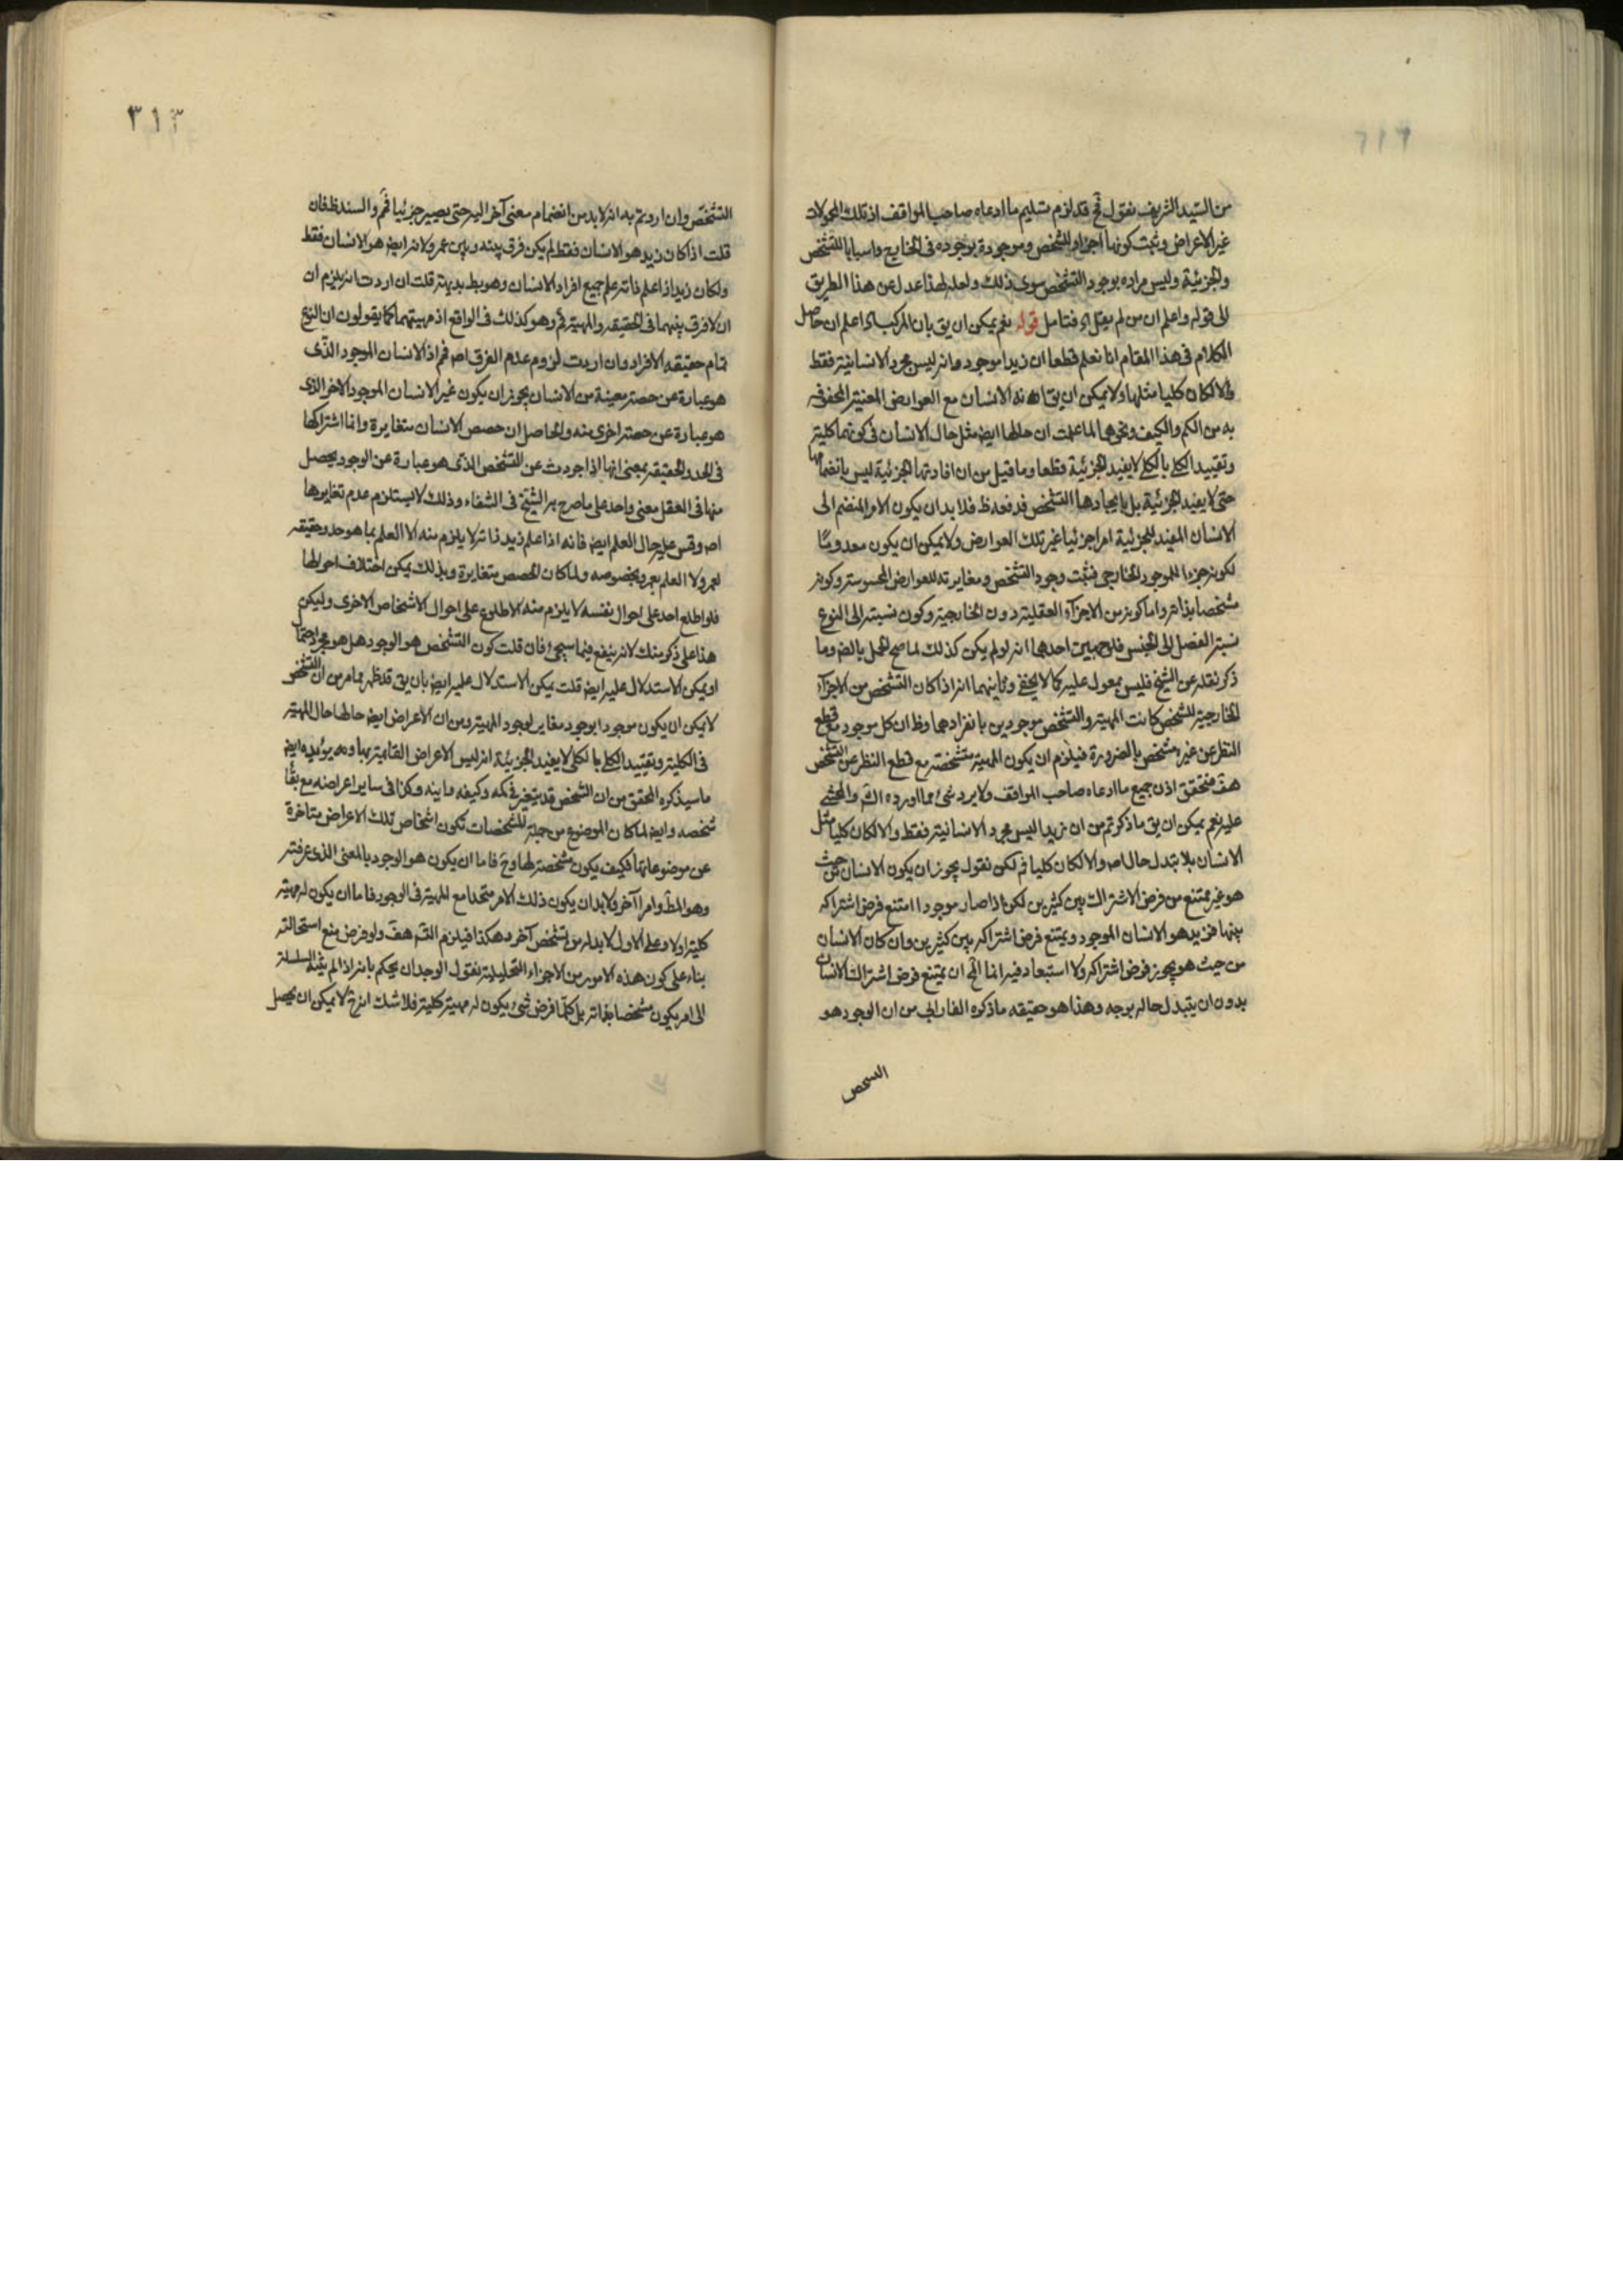 من السيد الشريف نقول فح قد لزم تسليم ما ادعاه صاحب المواقف اذ تلك المحمولات
غير الاعراض وثبت كونها اجزاء للشخص وموجودة بوجوده في الخارج واسبابا للتشخص
والجزئية وليس مراده بوجود التشخص سوى ذلك ولعله لهذا عدل عن هذا الطريق
الى قوله واعلم ان من لم يقل اه فتامل قوله نعم يمكن ان يق بان المركب اه اعلم ان حاصل
الكلام في هذا المقام انا نعلم قطعا ان زيدا موجود وانه ليس مجرد الانسانية فقط
والا لكان كليا مثلها ولا يمكن ان يق انه الانسان مع العوارض المعينة المحفوفه
به من الكم والكيف ونحوهما لما علمت ان حالها ايض مثل حال الانسان في كونها كلية
وتقييد الكلي بالكلي لا يفيد الجزئية قطعا وما قيل من ان افادتها الجزئية ليس بانضمامها
حتى لا يفيد الجزئية بل بايجادها التشخص فدفعه ظ فلا بد ان يكون الامر المنضم الى
الانسان المفيد للجزئية امرا جزئيا غير تلك العوارض ولا يمكن ان يكون معدوما
لكونه جزءا للموجود الخارجي فثبت وجود التشخص ومغايرته للعوارض المحسوسة وكونه
مشخصا بذاته واما كونه من الاجزاء العقلية دون الخارجية وكون نسبته الى النوع
نسبة الفصل الى الجنس فلوجهين احدهما انه لو لم يكن كذلك لما صح الحمل بالضر وما
ذكر نقله عن الشيخ فليس بمعول عليه كما لا يخفى وثانيهما انه اذا كان التشخص من الاجزاء
الخارجية للشخص كانت المهية والتشخص موجودين بانفرادهما وظ ان كل موجود مع قطع
النظر عن غيره مشخص بالضرورة فيلزم ان يكون المهية متشخصة مع قطع النظر عن التشخص
هف فتحقق اذن جميع ما ادعاه صاحب المواقف ولا يرد شئ مما اورده الش والمحشي
عليه نعم يمكن ان يق ما ذكرتم من ان زيدا ليس مجرد الانسانية فقط والا لكان كليا مثل
الانسان بلا تبدل حال اص والا لكان كليا فم لكن نقول يجوز ان يكون الانسان من حيث
هو غير ممتنع من فرض الاشتراك بين كثيرين لكن اذا صار موجودا امتنع فرض اشتراكه
بينها فزيد هو الانسان الموجود ويمتنع فرض اشتراكه بين كثيرين وان كان الانسان
من حيث هو يجوز فرض اشتراكه ولا استبعاد فيه انما المح ان يمتنع فرض اشتراك الانسان
بدون ان يتبدل حاله بوجه وهذا هو حقيقه ما ذكره الفارابي من ان الوجود هو
السحص
٣١٣
التشخص وان اردتم به انه لا بد من انضمام معنى آخر اليه حتى يصير جزئيا فم والسند ظ فان
قلت اذا كان زيد هو الانسان فقط لم يكن فرق بينه وبين عمرو لانه ايض هو الانسان فقط
ولكان زيد اذا علم ذاته علم جميع افراد الانسان وهو بط بديهة قلت ان اردت انه يلزم ان
ان لا فرق بينهما في الحقيقه والمهية فم وهو كذلك في الواقع اذ مهيتهما كما يقولون ان النوع
تمام حقيقه الافراد وان اردت لزوم عدم الفرق اص فم اذ الانسان الموجود الذى
هو عبارة عن حصة معينة من الانسان يجوز ان يكون غير الانسان الموجود الاخر الذى
هو عبارة عن حصة اخرى منه والحاصل ان حصص الانسان متغايرة وانما اشتراكها
في الحد والحقيقه بمعنى انها اذا جردت عن التشخص الذى هو عبارة عن الوجود يحصل
منها في العقل معنى واحد على ما صرح به الشيخ في الشفاء وذلك لا يستلزم عدم تغايرها
اص وقس عليه حال العلم ايض فانه اذا علم زيد ذاته لا يلزم منه الا العلم بما هو حد وحقيقه
لعمرو لا العلم بعمرو بخصوصه ولما كان الحصص متغايرة وبذلك يمكن اختلاف احوالها
فلو اطلع احد على احوال نفسه لا يلزم منه الاطلاع على احوال الاشخاص الاخرى وليكن
هذا على ذكر منك لانه ينفع فيما سيجئ فان قلت كون التشخص هو الوجود هل هو مجرد احتمال
او يمكن الاستدلال عليه ايض قلت يمكن الاستدلال عليه ايض بان يق قد ظهر مما مر من ان التشخص
لا يمكن ان يكون موجودا بوجود مغاير لوجود المهية ومن ان الاعراض ايض حالها حال المهية
في الكلية وتقييد الكلي بالكلي لا يفيد الجزئية انه ليس الاعراض القائمة بها ومما يؤيده ايض
ما سيذكره المحقق من ان الشخص قد يتغير في كمه وكيفه واينه وكذا في ساير اعراضه مع بقاء
شخصه وايض لما كان الموضوع من جملة المشخصات تكون اشخاص تلك الاعراض متاخرة
عن موضوعاتها فكيف يكون مشخصة لها وح فاما ان يكون هو الوجود بالمعنى الذى عرفته
وهو المط وامرا آخر فلا بد ان يكون ذلك الامر متحدا مع المهية في الوجود فاما ان يكون له مهية
كلية او لا وعلى الاول لا بد له من تشخص آخر وهكذا فيلزم التس هف ولو فرض منع استحالته
بناء على كون هذه الامور من الاجزاء التحليلية نقول الوجدان يحكم بانه اذا لم ينته السلسلة
الى امر يكون مشخصا بذاته بل كلما فرض شئ يكون له مهية كلية فلا شك انه ح لا يمكن ان يحصل